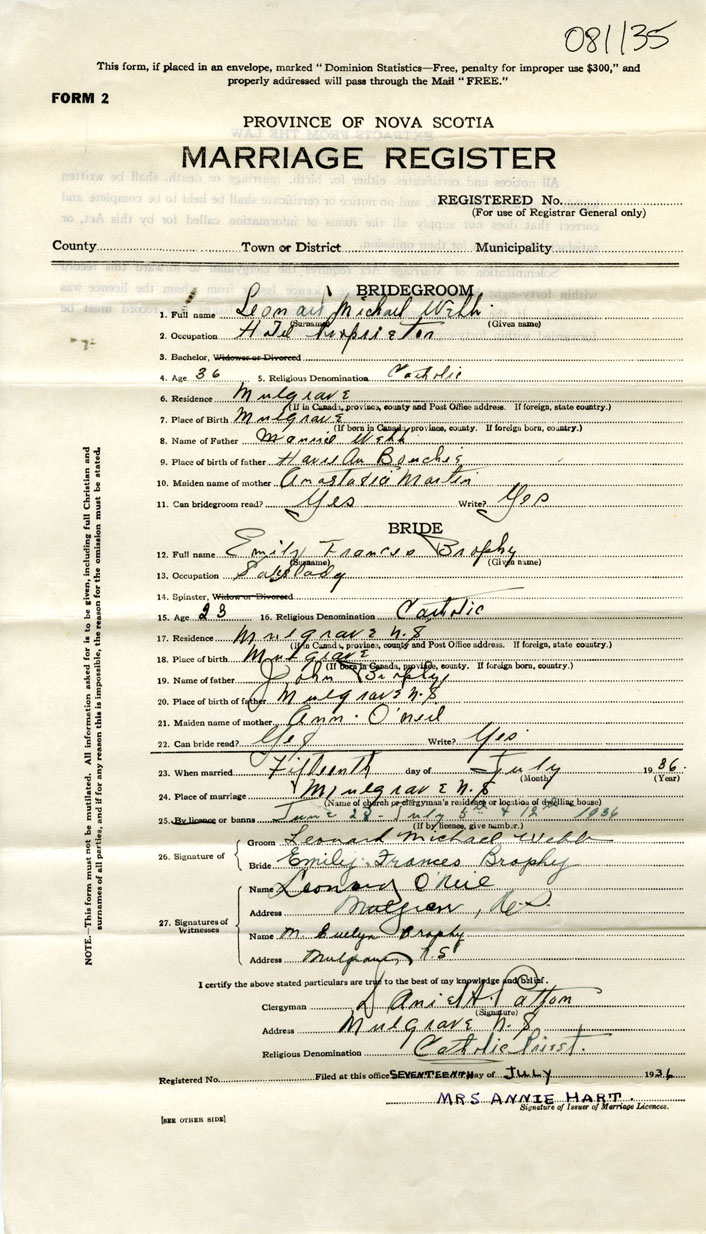 081135
This form, if placed in an envelope, marked "Dominion Statistics—Free, penalty for improper use $300," and
properly addressed will pass through the Mail "FREE."
FORM 2
PROVINCE OF NOVA SCOTIA
MARRIAGE REGISTER
REGISTERED No.
(For use of Registrar General only)
County Town or District Municipality
BRIDEGROOM
1. Full name Leonard Michael Webb
(Surname) (Given name)
2. Occupation Hotel Proprietor
3. Bachelor, Widower or Divorced
4. Age 36 5. Religious Denomination Catholic
6. Residence Mulgrave
(If in Canada, province, county and Post Office address. If foreign, state country.)
7. Place of Birth Mulgrave
(If born in Canada, province, county. If foreign born, country.)
8. Name of Father Webb
9. Place of birth of father Havre Au Bouchie
10. Maiden name of mother Anastatia Martin
11. Can bridegroom read? Yes Write? Yes
BRIDE
12. Full name Emily Frances Brophy
(Surname) (Given name)
13. Occupation Saleslady
14. Spinster, Widow or Divorced
15. Age 23 16. Religious Denomination Catholic
17. Residence Mulgrave N.S
(If in Canada, province, county and Post Office address. If foreign, state country.)
18. Place of birth Mulgrave
(If born in Canada, province, county. If foreign born, country.)
19. Name of father John Brophy
20. Place of birth of father Mulgrave N.S
21. Maiden name of mother Ann O'neil
22. Can bride read? Yes Write? Yes
23. When married Fifteenth day of July 1936.
(Month) (Year)
24. Place of marriage Mulgrave N.S
(Name of church or clergyman's residence or location of dwelling house)
25. By licence or banns June 28 - July 5th & 12th 1936
(If by licence, give number.)
26. Signature of Groom Leonard Michael Webb
Bride Emily Frances Brophy
27. Signatures of Witnesses
Name Leonard O'Neil
Address Mulgrave, N.S.
Name M. Evelyn Brophy
Address Mulgrave N.S
I certify the above stated particulars are true to the best of my knowledge and belief.
Clergyman Daniel A. Patton
(Signature)
Address Mulgrave N.S
Religious Denomination Catholic Priest.
Registered No. Filed at this office SEVENTEENTH day of JULY 1936
MRS ANNIE HART.
Signature of Issuer of Marriage Licences.
[SEE OTHER SIDE]
NOTE.—This form must not be mutilated. All information asked for is to be given, including full Christian and
surnames of all parties, and if for any reason this is impossible, the reason for the omission must be stated.